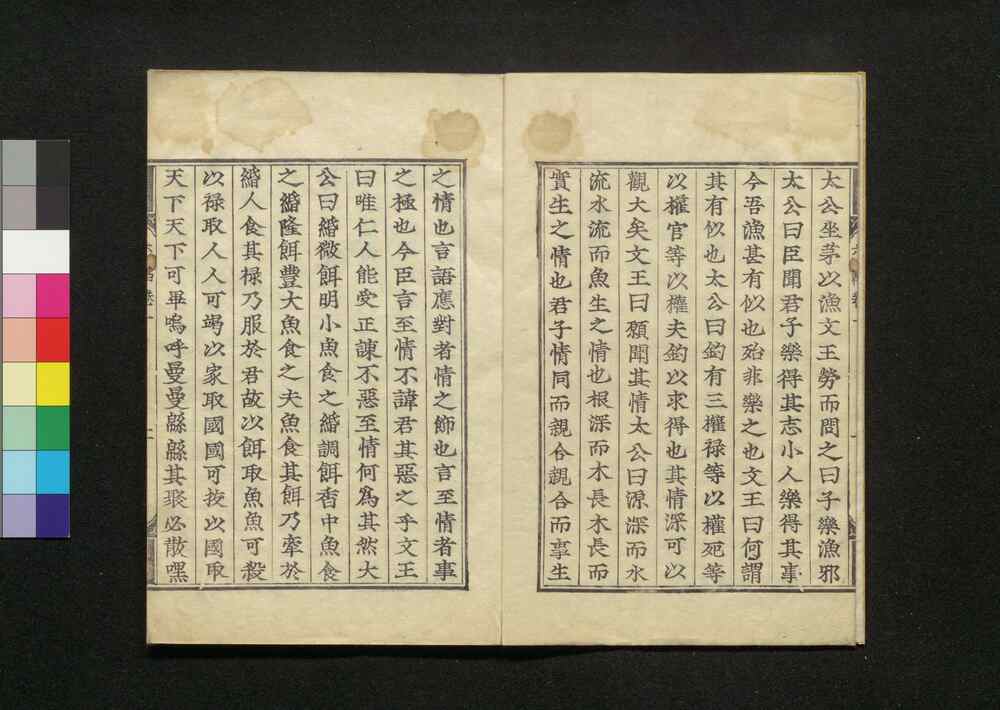 太公坐茅以漁文王勞而問之曰子樂漁邪
太公曰臣聞君子樂得其志小人樂得其事
今吾漁甚有似也殆非樂之也文王曰何謂
其有似也太公曰釣有三權禄等以權死等
以權官等以權夫釣以求得也其情深可以
觀大矣文王曰願聞其情太公曰源深而水
流水流而魚生之情也根深而木長木長而
實生之情也君子情同而親合親合而事生
之情也言語應對者情之飾也言至情者事
之極也今臣言至情不諱君其惡之乎文王
曰唯仁人能受正諫不惡至情何爲其然太
公曰緡微餌明小魚食之緡調餌香中魚食
之緡隆餌豐大魚食之夫魚食其餌乃牽於
緡人食其禄乃服於君故以餌取魚魚可殺
以禄取人人可竭以家取國國可拔以國取
天下天下可畢嗚呼曼曼緜緜其聚必散嘿